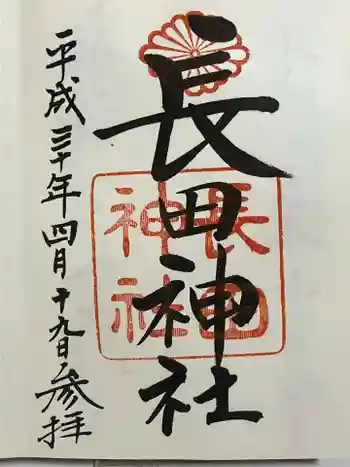 長田神社
長田
神社
平成三十年四月十九日参拝